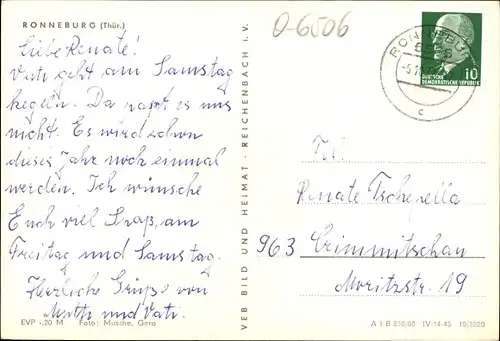 RONNEBURG (Thür.)
O-6506
Liebe Renate!
Vati geht am Samstag
kegeln. Da paßt es uns
nicht. Es wird schon
dieses Jahr noch einmal
werden. Ich wünsche
Euch viel Spaß, am
Freitag und Samstag.
Herzliche Grüße von
Mutti und Vati.
EVP -,20 M Foto: Musche, Gera
VEB BILD UND HEIMAT · REICHENBACH I. V.
RONNEBURG
6506
c
10
DEUTSCHE
DEMOKRATISCHE REPUBLIK
Renate
963 Crimmitschau
Moritzstr. 19
A 1 B 810/68 IV-14-45 10/1220